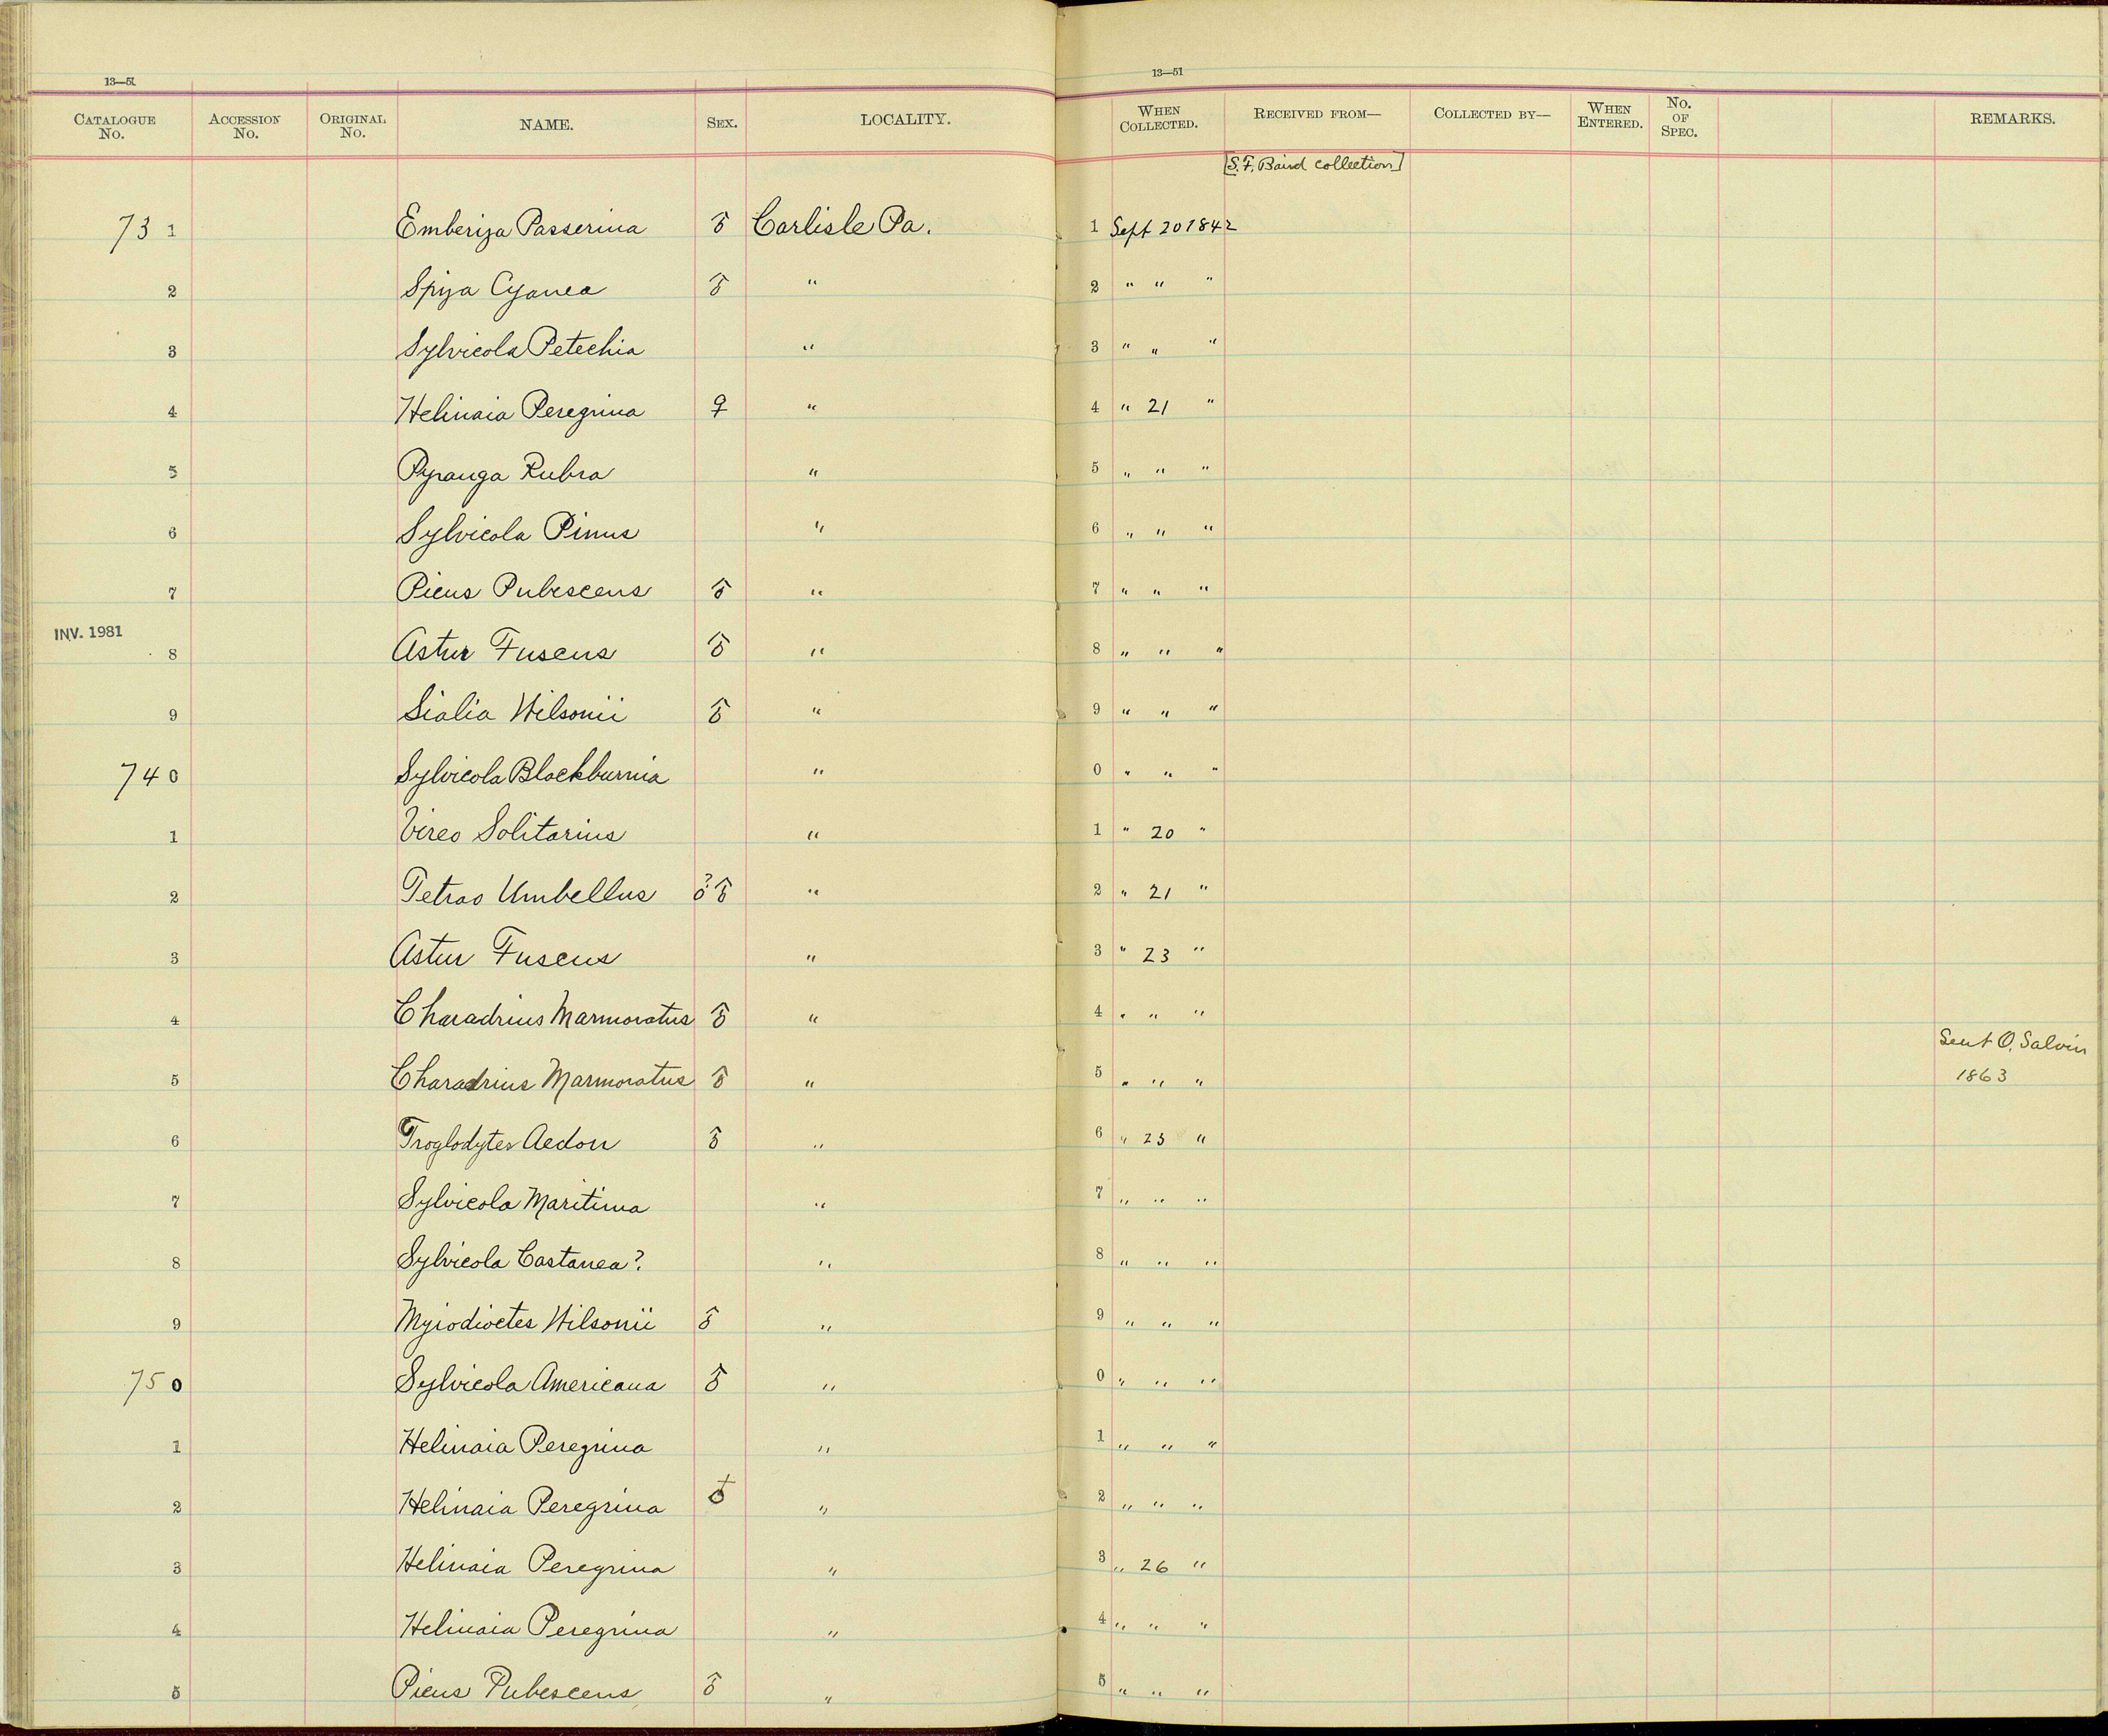 13—51
13—51
CATALOGUE No. ACCESSION No. ORIGINAL No. NAME. SEX. LOCALITY. WHEN COLLECTED. RECEIVED FROM— COLLECTED BY— WHEN ENTERED. No. OF SPEC. REMARKS.
[S. F. Baird collection]
73 1 Emberiza Passerina ♂ Carlisle Pa. 1 Sept 20 1842
2 Spiza Cyanea ♂ " 2 " " "
3 Sylvicola Petechia " 3 " " "
4 Helinaia Peregrina ♀ " 4 " 21 "
5 Pyranga Rubra " 5 " " "
6 Sylvicola Pinus " 6 " " "
7 Picus Pubescens ♂ " 7 " " "
INV. 1981
8 Astur Fuscus ♂ " 8 " " "
9 Sialia Wilsonii ♂ " 9 " " "
74 0 Sylvicola Blackburnia " 0 " " "
1 Vireo Solitarius " 1 " 20 "
2 Tetrao Umbellus ♂ " 2 " 21 "
3 Astur Fuscus " 3 " 23 "
4 Charadrius Marmoratus ♂ " 4 " " "
5 Charadrius Marmoratus ♂ " 5 " " " Sent O. Salvin 1863
6 Troglodytes Aedon ♂ " 6 " "
7 Sylvicola Maritima " 7 " " "
8 Sylvicola Castanea? " 8 " " "
9 Myiodioctes Wilsonii ♂ " 9 " " "
75 0 Sylvicola Americana ♂ " 0 " " "
1 Helinaia Peregrina " 1 " " "
2 Helinaia Peregrina ♂ " 2 " " "
3 Helinaia Peregrina " 3 " 26 "
4 Helinaia Peregrina " 4 " " "
5 Picus Pubescens ♂ " 5 " " "